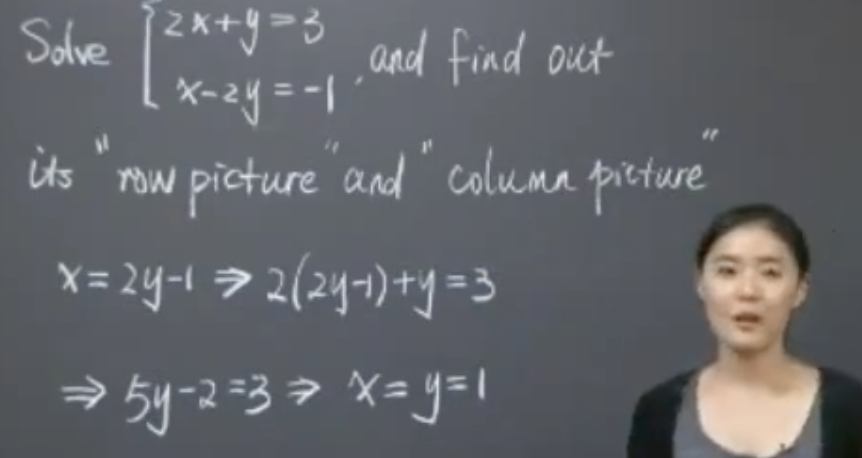 Solve { 2x+y=3
x-2y=-1 , and find out
its "row picture" and "column picture"
x=2y-1 ⇒ 2(2y-1)+y=3
⇒ 5y-2=3 ⇒ x=y=1